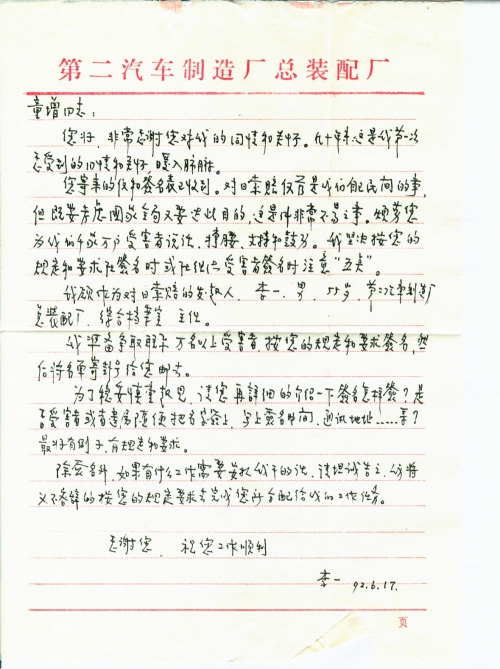 第二汽车制造厂总装配厂
童增同志：
您好，非常感谢您对我的同情和关怀。几十年来这是我第一次
感受到的同情和关怀，
您寄来的信和签名表已收到。对日索赔仅管是我们自己民间的事，
但既要考虑国家全局又要达此目的，这是件非常不易之事。烦劳您
为我们千家万户受害者说话，撑腰，支持和鼓劲。我坚决按您的
规定和要求在签名时或在组织受害者签名时注意“五点”。
我愿作为对日索赔的发起人，李一，男，岁，第二汽车制造厂
总装配厂，综合档案室主任。
我准备争取联系万名以上受害者，按您的规定和要求签名，然
后将名单寄给您
为了稳妥慎重起见，请您再详细的介绍一下签名怎样签？是
否受害者或者遗属随便把名字签上，写上签名时间，通讯地址……等？
最好有例子，有规定和要求。
除签名外，如果有什么工作需要我干的话，请坦诚告之，我将
义不容辞的按您的规定要求去完成您所分配给我的工作任务。
感谢您，祝您工作顺利
李一 92.6.17.
页